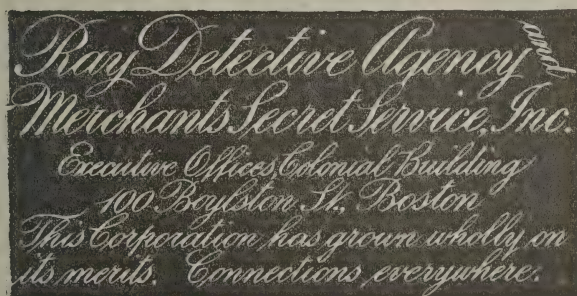 Ray Detective Agency and
Merchants Secret Service, Inc.
Executive Offices, Colonial Building
100 Boylston St., Boston
This Corporation has grown wholly on
its merits. Connections everywhere.